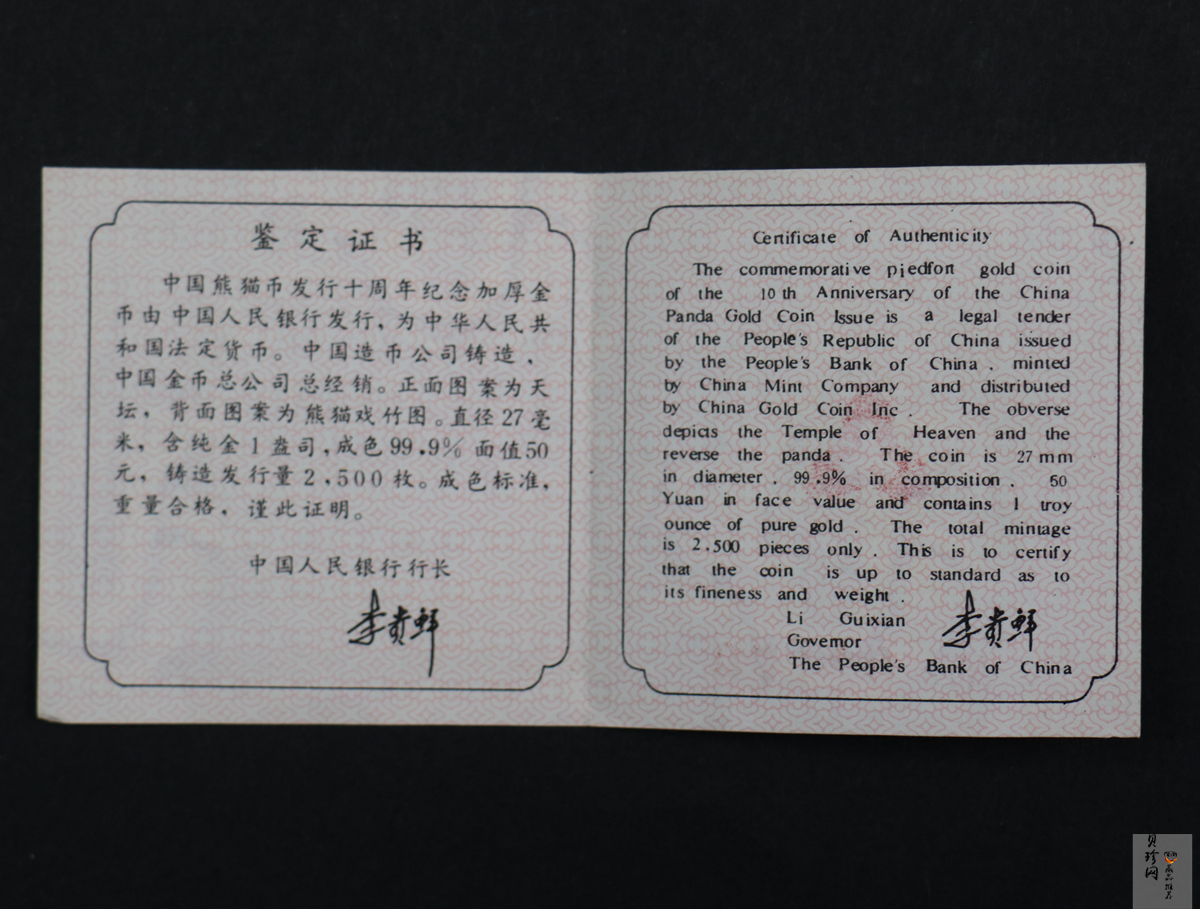 鉴定证书
中国熊猫币发行十周年纪念加厚金
币由中国人民银行发行，为中华人民共
和国法定货币。中国造币公司铸造、
中国金币总公司总经销。正面图案为天
坛，背面图案为熊猫戏竹图。直径27毫
米，含纯金1盎司，成色99.9%面值50
元，铸造发行量2,500枚。成色标准，
重量合格，谨此证明。
中国人民银行行长
李贵鲜
Certificate of Authenticity
The commemorative piedfort gold coin
of the 10th Anniversary of the China
Panda Gold Coin Issue is a legal tender
of the People's Republic of China issued
by the People's Bank of China. minted
by China Mint Company and distributed
by China Gold Coin Inc. The obverse
depicts the Temple of Heaven and the
reverse the panda. The coin is 27mm
in diameter. 99.9% in composition. 50
Yuan in face value and contains 1 troy
ounce of pure gold. The total mintage
is 2.500 pieces only. This is to certify
that the coin is up to standard as to
its fineness and weight.
Li Guixian
李贵鲜
Governor
The People's Bank of China
贝珍网
藏品推荐